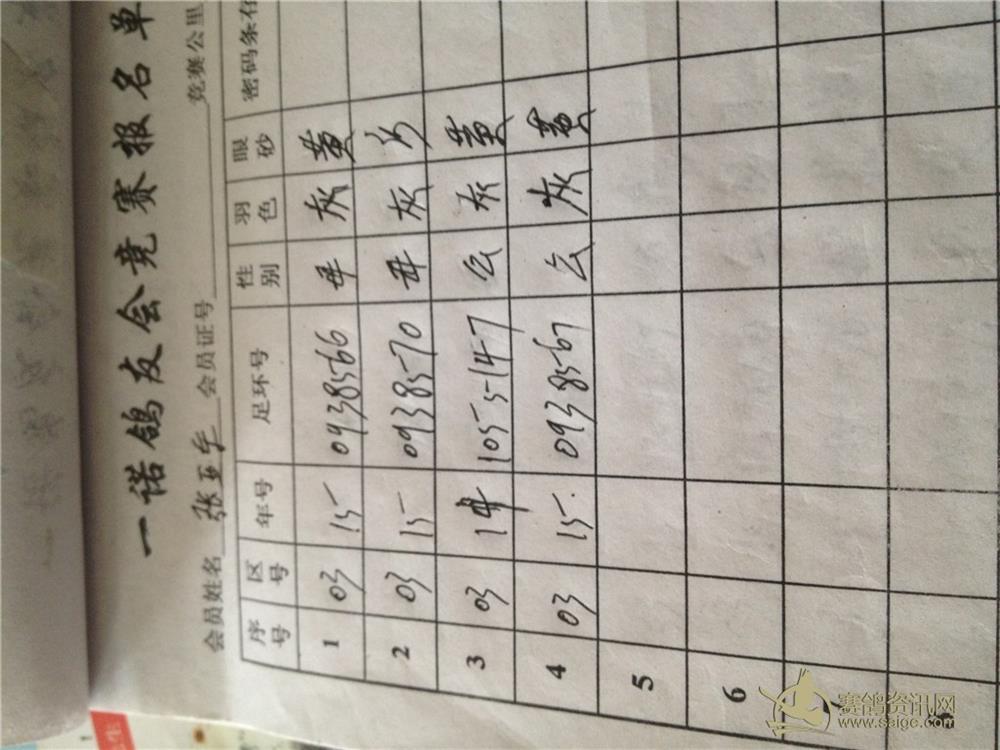 一诺鸽友会竞赛报名单
会员姓名 张亚军 会员证号 竞赛公里
序号 区号 年号 足环号 性别 羽色 眼砂 密码条存
1 03 15 0938566 母 灰 黄
2 03 15 0938570 母 灰
3 03 14 1055147 公 灰 黄
4 03 15 0938567 公 灰 黄
5
6
赛鸽资讯网
www.saige.com